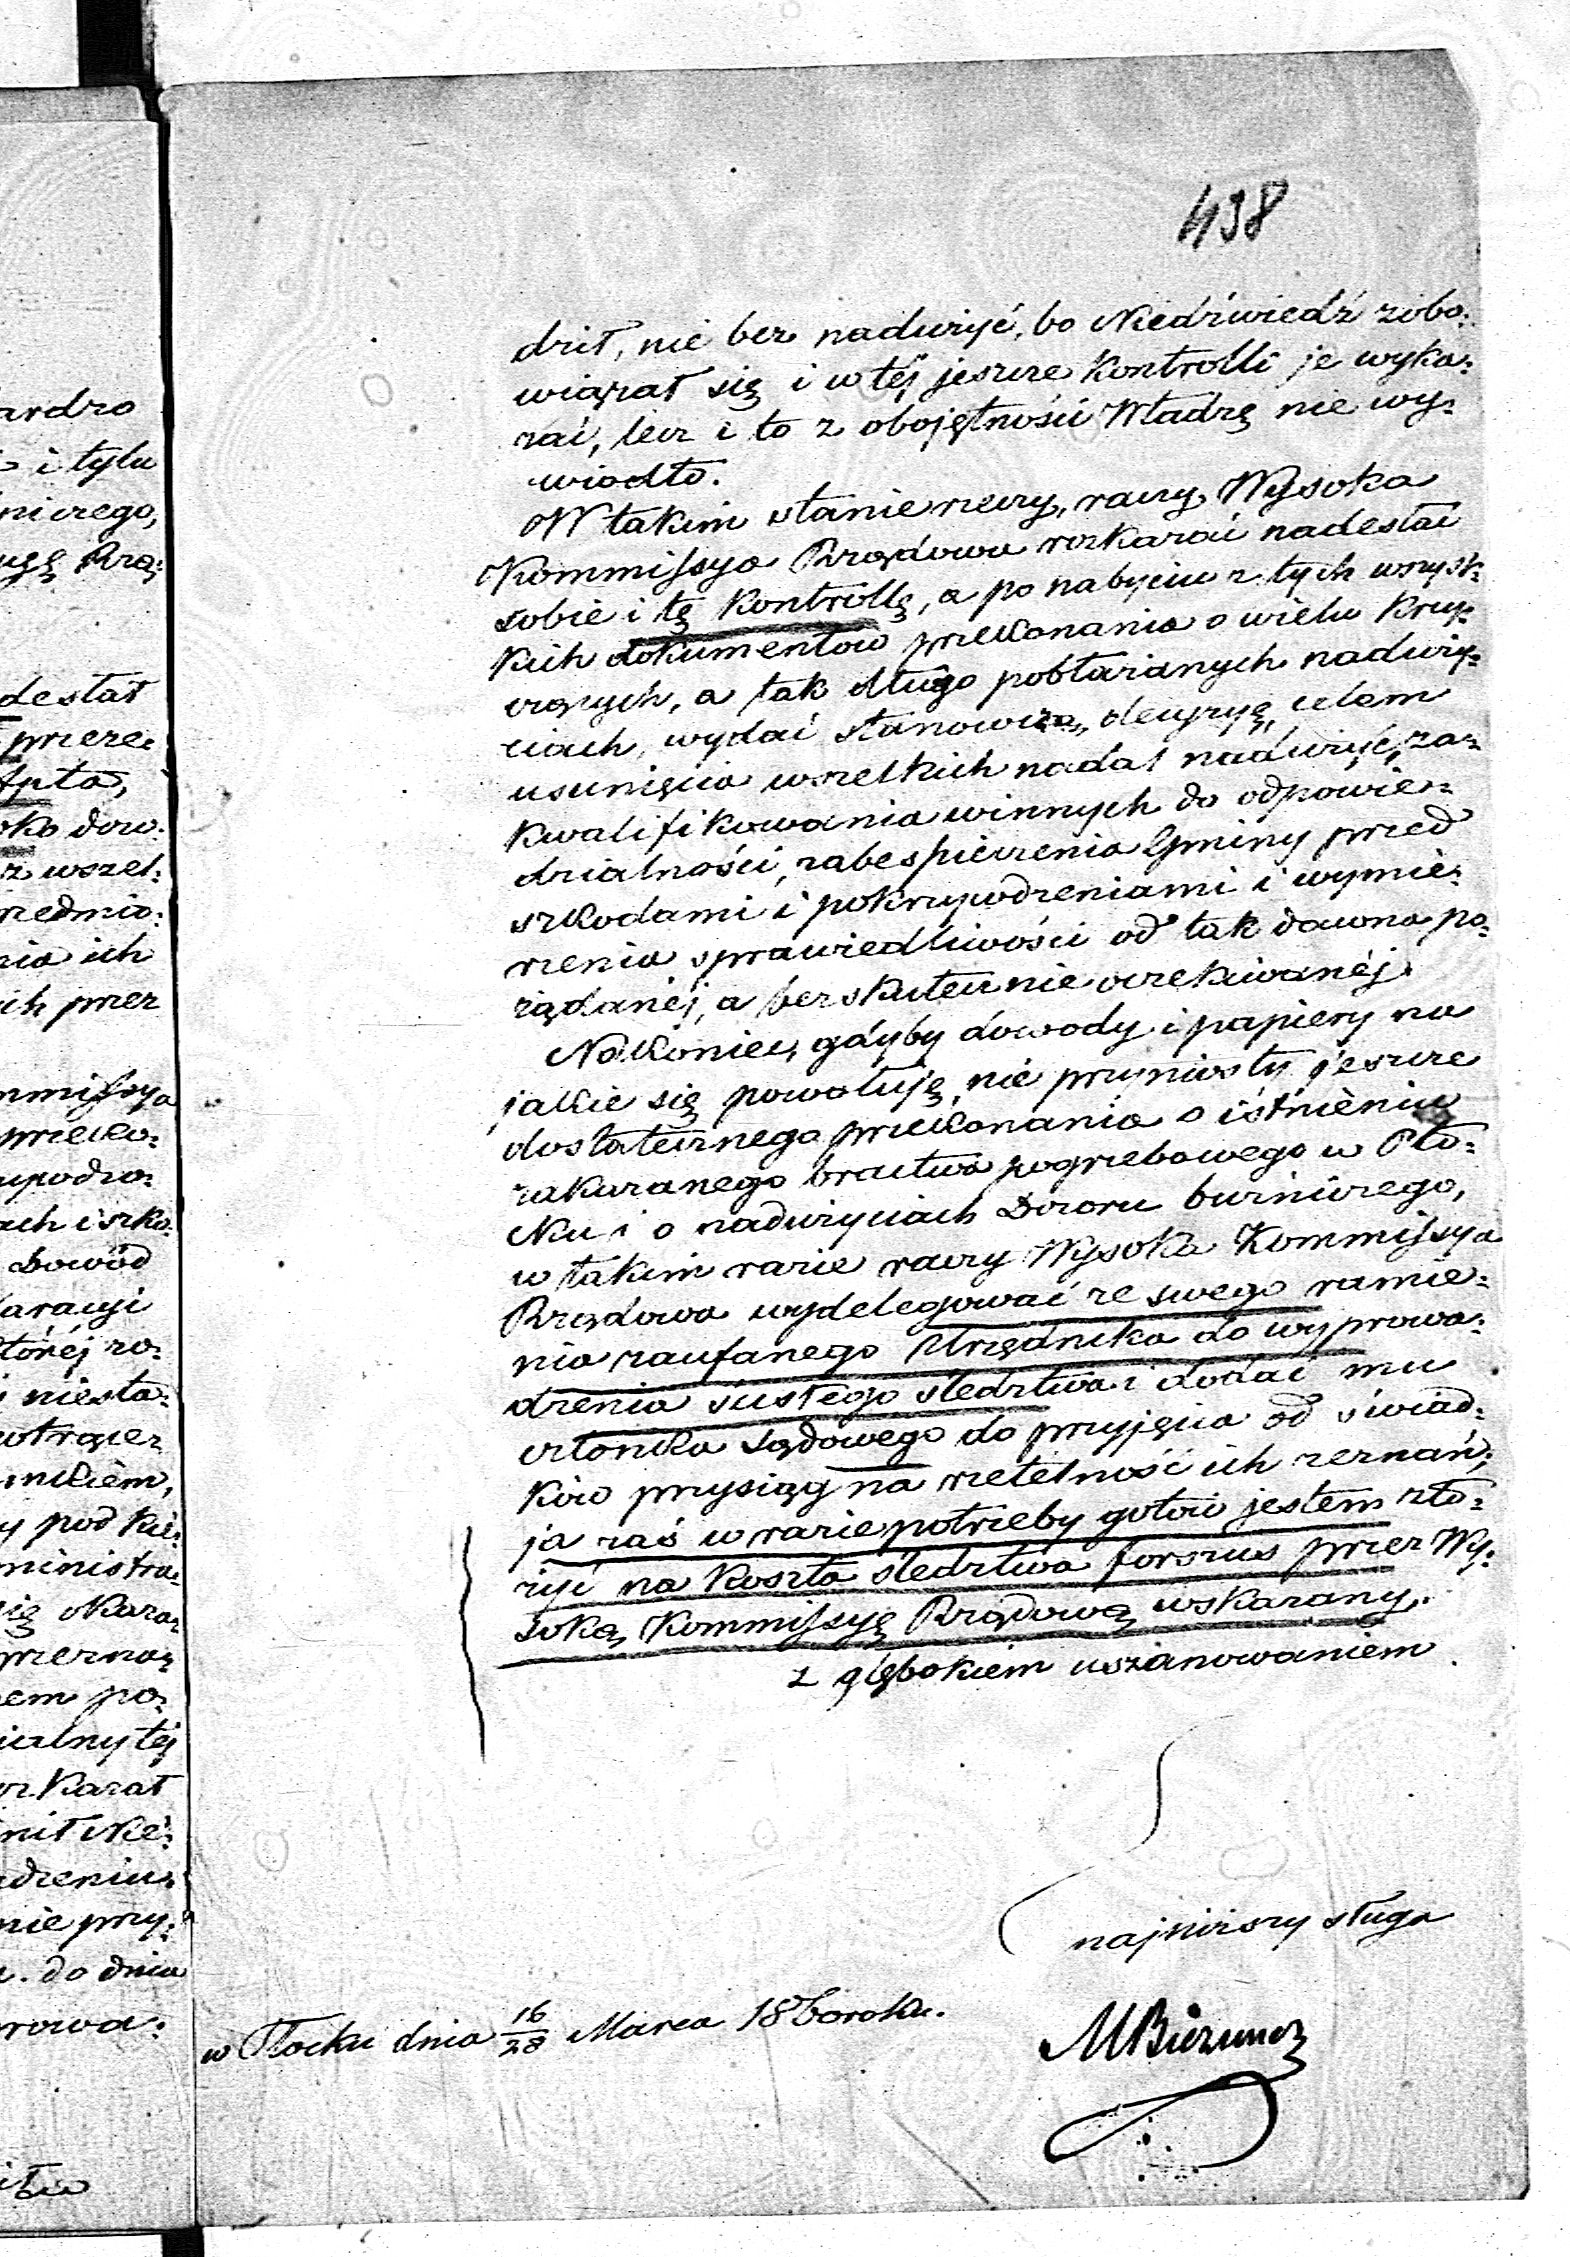 438
dził, nie bez nadużyć, bo Niedźwiedź zobo:
wiązał się i w téj jeszcze Kontrolli je wyka:
zać, lecz i to z obojętności Władzę nie wy:
wiodło.
W takim stanie rzeczy, raczy Wysoka
Kommissya Rządowa rozkazać nadesłać
sobie i tę Kontrollę, a po nabyciu z tych wszyst:
kich dokumentów przekonania o wielu Krzy:
czących, a tak długo pobłażanych naduży:
ciach, wydać stanowczą decyzyę, celem
usunięcia wszelkich nadal nadużyć, za:
kwalifikowania winnych do odpowie:
dzialności, zabespieczenia Gminy przed
szkodami i pokrzywdzeniami i wymie:
rzenia sprawiedliwości od tak dawna po:
żądanéj, a bezskutecznie oczekiwanéj.
Nakoniec, gdyby dowody i papiery na
jakie się powołuję, nie przyniosły jeszcze
dostatecznego przekonania o istnieniu
zakazanego bractwa pogrzebowego w Pło:
cku i o nadużyciach Dozoru bużniczego,
w takim razie raczy Wysoka Kommissya
Rządowa wydelegować ze swego ramie:
nia zaufanego Urzędnika do wyprowa:
dzenia ścisłego śledztwa i dodać mu
członka sądowego do przyjęcia od świad:
ków przysiąg na rzetelność ich zeznań,
ja zaś w razie potrzeby gotów jestem zło:
żyć na koszta śledztwa forszus przez Wy:
soką Kommissyę Rządową wskazany.
z głębokiem uszanowaniem
najniższy sługa
w Płocku dnia 16/28 Marca 18 roku.
ardzo
i tylu
niczego,
Rzą:
desłał
przeze:
dow:
z wszel:
rzedmio:
nia ich
ich przez
mmissya
przeko:
ach i szko:
Dowód
któréj zo:
niesta:
nikiem,
y pod kie:
ministra:
się okaza:
em po:
ialny téj
ozkazał
dzeniu
nie przy:
do dnia
rowa: